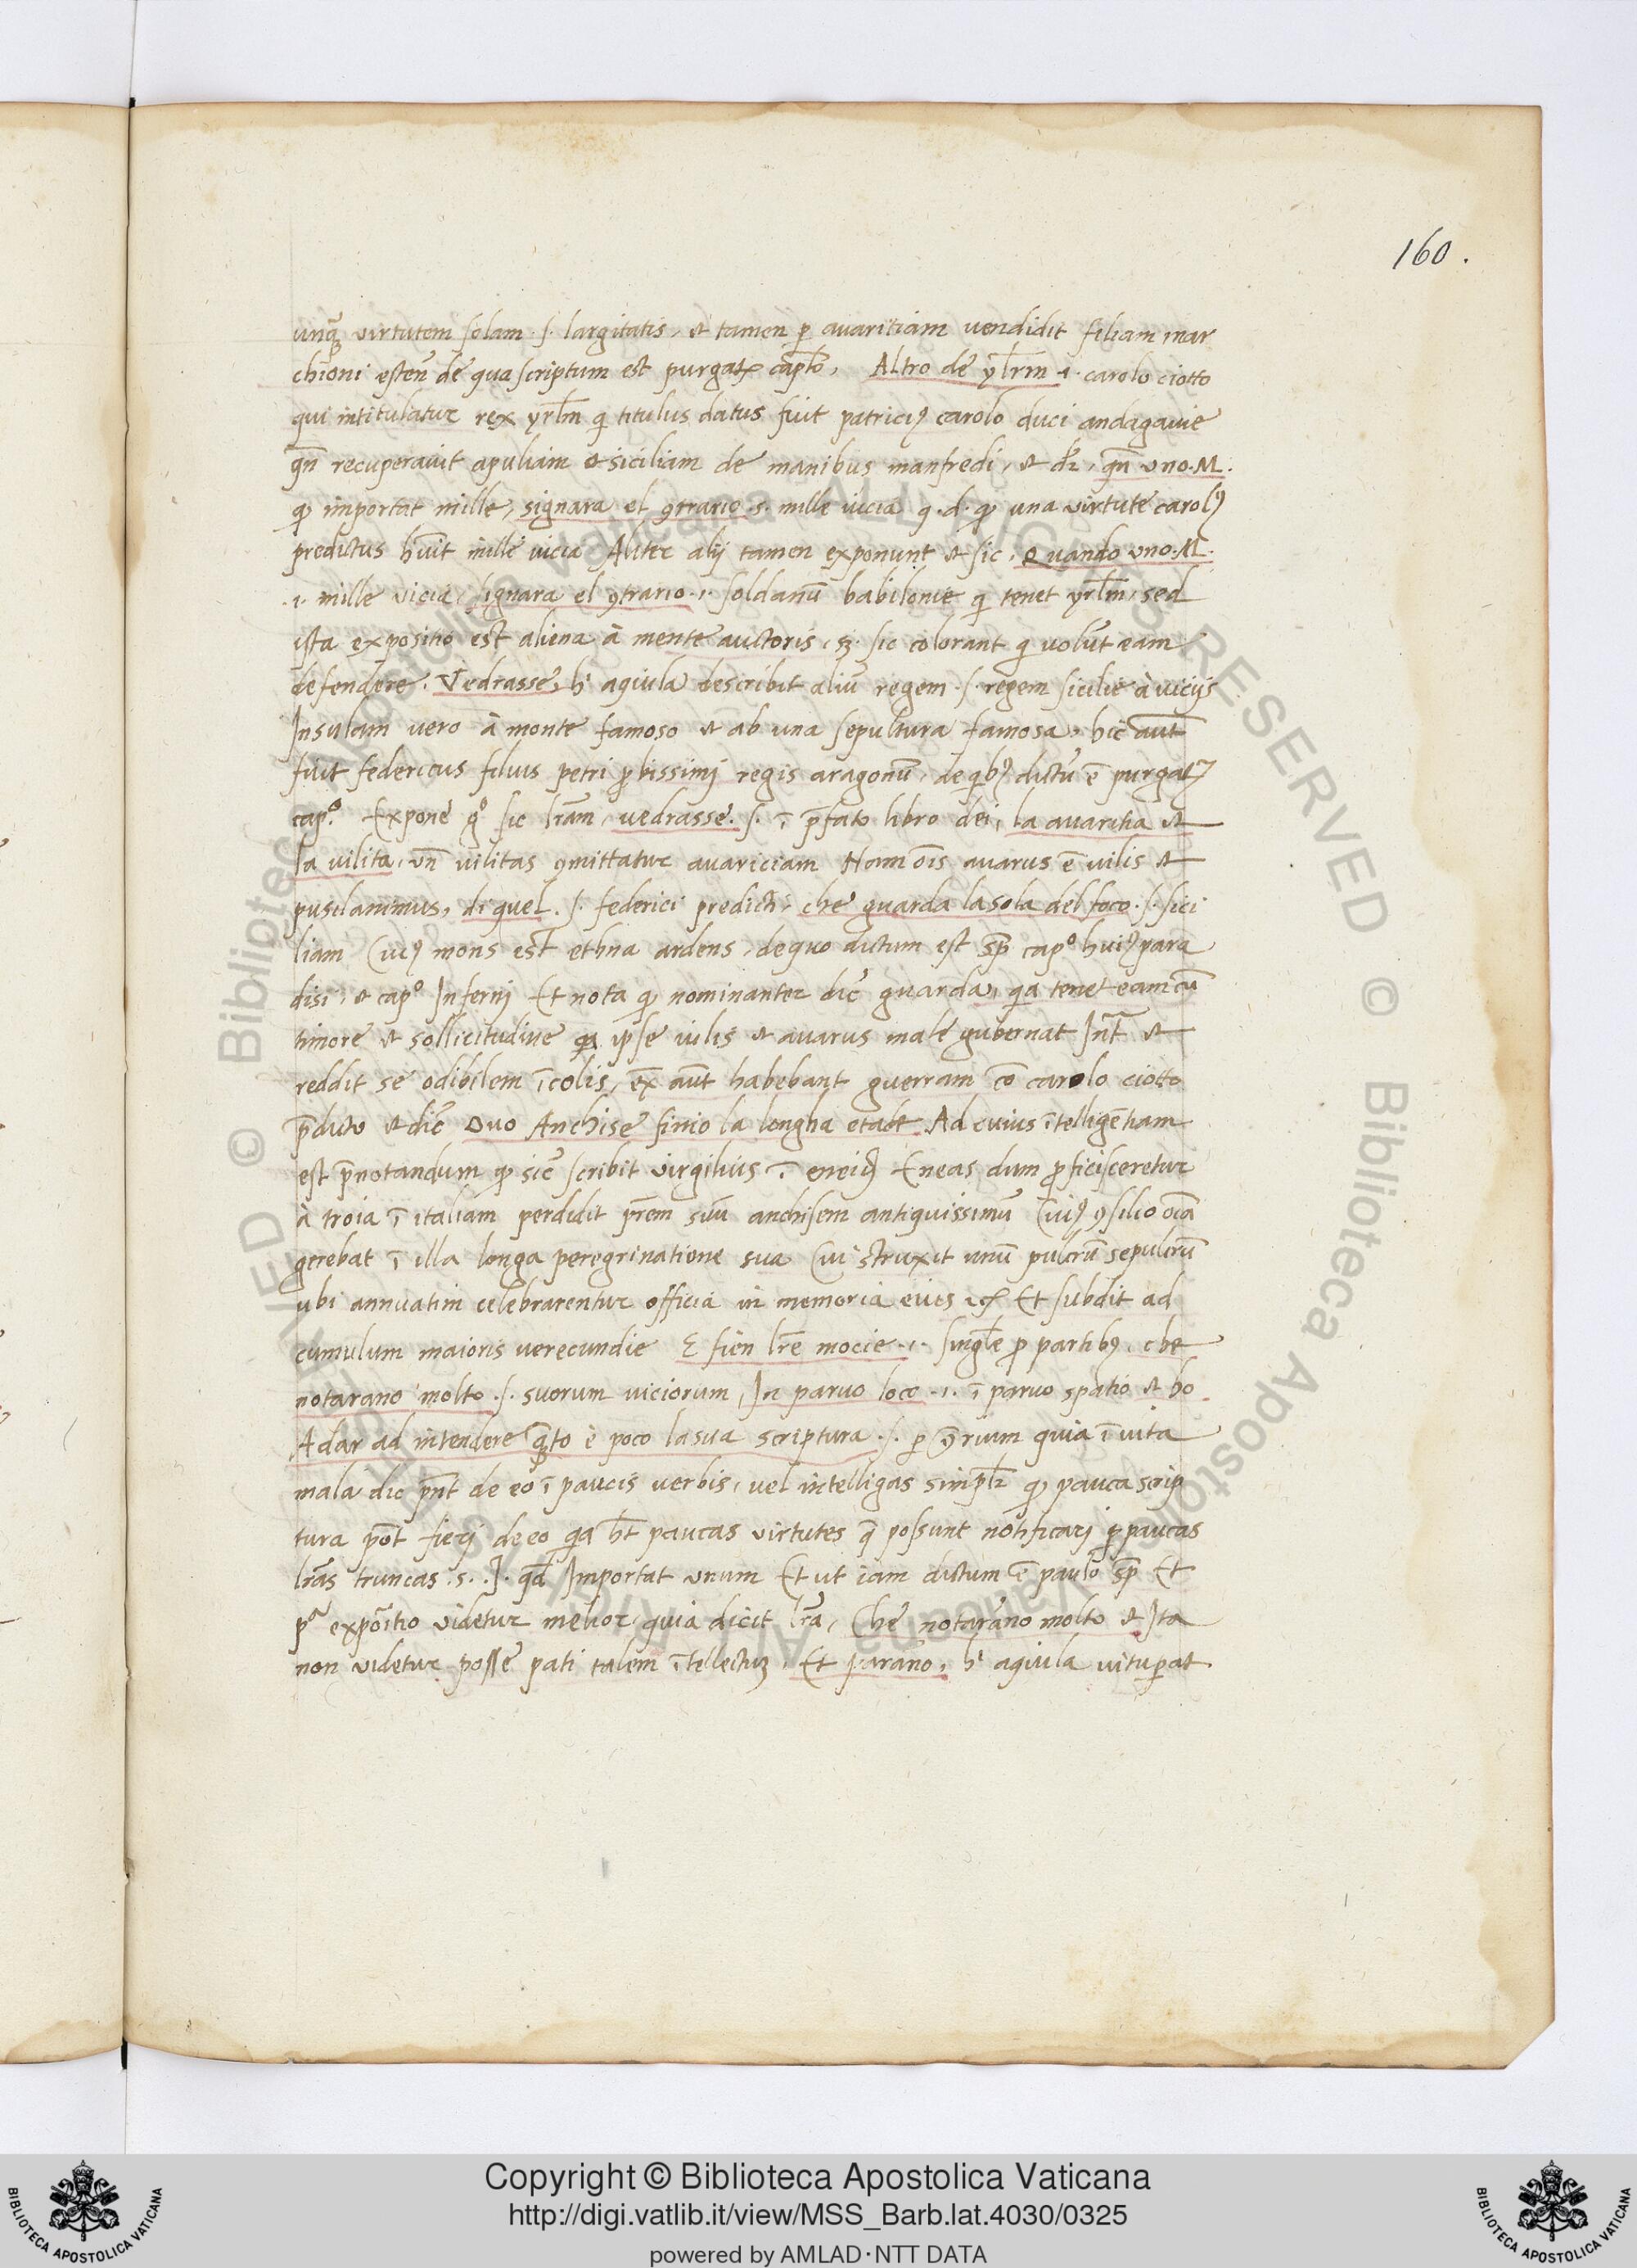 160.
unq̃ virtutem solam .s. largitatis, et tamen p avaritiam vendidit filiam mar
chioni esteñ de qua scriptum est purgat capto, Altro de ylrm .i. carolo ciotto
qui intitulatur rex yrlm q titulus datus fuit patrici9 carolo duci andagavie
qñ recuperavit apuliam et siciliam de manibus manfredi, et dr, qñ uno .M.
q importat mille, signara el 9trario .s. mille vicia q.d. q una virtute carol9
predictus huit mille vicia Aliter alij tamen exponunt et sic, Quando uno .M.
.i. mille vicia, signara el 9trario .i. soldanũ babilonie q tenet yrlm, sed
ista expositio est aliena à mente auctoris, sz sic colorant q volũt eam
defendere. Vedrasse, h' aqiula describit aliũ regem .s. regem sicilie à viciis
Insulam vero à monte famoso et ab una sepultura famosa, hic aut
fuit federicus filius petri pbissimj regis aragonũ, de qb9 dictũ ẽ purgat
cap.º Expone gº sic lram, vedrasse .s. ĩ pfato libro dei, la avaritia et
la vilita, uñ vilitas 9mittatur avariciam Nam ois avarus ẽ vilis et
pusilanimus, di quel .s. federici predicti, che guarda la sola del foco .s. sici
liam Cui9 mons est ethna ardens, de quo dictum est sp capº hui9 para
disi, et capº Infernj Et nota q nominanter dic guarda, qa tenet eam cũ
timore et sollicitudine qa ipse vilis et avarus male gubernat Int et
reddit se odibilem ĩcolis, ex aut habebant guerram cõ carolo ciotto
pdicto et dic Ovo Anchise finio la longha etade Ad cuius ĩtelligẽtiam
est pnotandum q sic scribit virgilius ĩ eneid Eneas dum pficisceretur
à troia ĩ italiam perdidit prem suũ anchisem antiquissimũ Cui9 9silio oia
gerebat ĩ illa longa peregrinatione sua Cui struxit unũ pulcrũ sepulcrũ
ubi annuatim celebrarentur officia in memoria eius Et subdit ad
cumulum maioris verecundie E fien lre mocie .i. single p partib9, che
notarano molto .s. suorum viciorum, In parvo loco .i. ĩ parvo spatio et ho
A dar ad intendere q̃to è poco la sua scriptura .s. p 9rium quia ĩ vita
mala dic pnt de eo ĩ paucis verbis, vel intelligas simplr q pauca scrip
tura pot fierj de eo qa ht paucas virtutes q possunt notificarj p paucas
lras truncas .s. .I. qd Importat unum Et ut iam dictum ẽ paulo sp Et
pª expoitio videtur melior, quia dicit lra, Che notarano molto et Ita
non videtur posse pati talem ĩtellectuz, Et parano, h' aqiula vitupat
Copyright © Biblioteca Apostolica Vaticana
http://digi.vatlib.it/view/MSS_Barb.lat.4030/0325
powered by AMLAD·NTT DATA
BIBLIOTECA APOSTOLICA VATICANA
BIBLIOTECA APOSTOLICA VATICANA